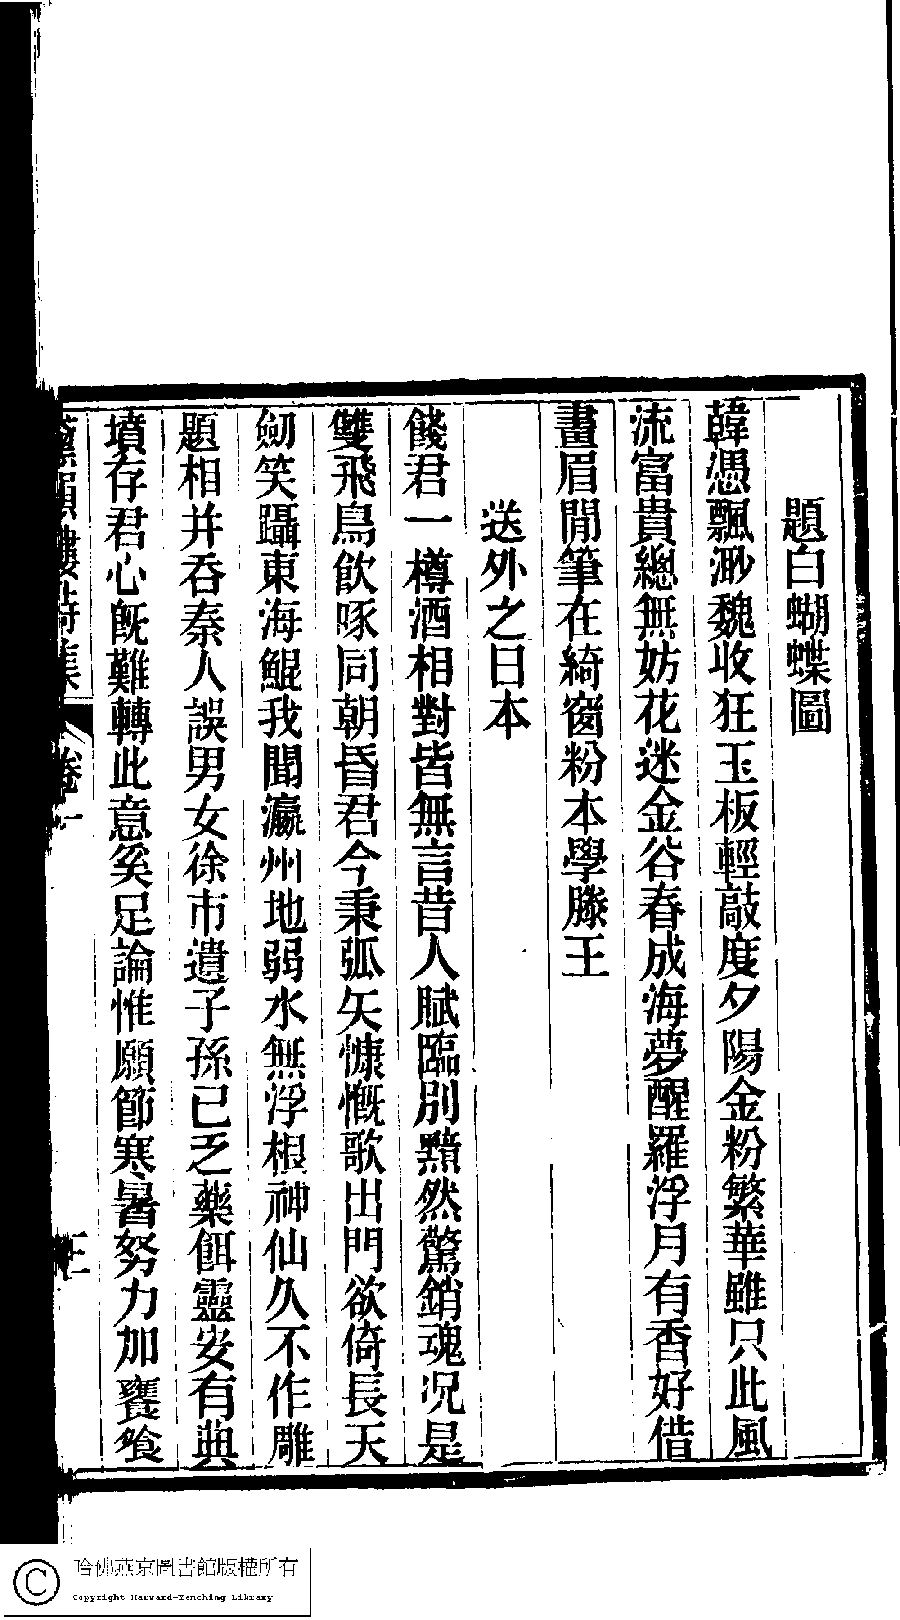 題白蝴蝶圖
韓憑飄渺魏收狂玉板輕敲度夕陽金粉繁華雖只此風
流富貴總無妨花迷金谷春成海夢醒羅浮月有香好借
畫眉閒筆在綺窗粉本學滕王
送外之日本
餞君一樽酒相對皆無言昔人賦臨別黯然驚銷魂况是
雙飛鳥飲啄同朝昏君今秉弧矢慷慨歌出門欲倚長天
劒笑躡東海鯤我聞瀛州地弱水無浮根神仙久不作雕
題相并吞秦人誤男女徐市遺子孫已乏藥餌靈安有典
墳存君心旣難轉此意奚足論惟願節寒暑努力加餐飱
卷一
哈佛燕京圖書館版權所有
Copyright Harvard-Yenching Library